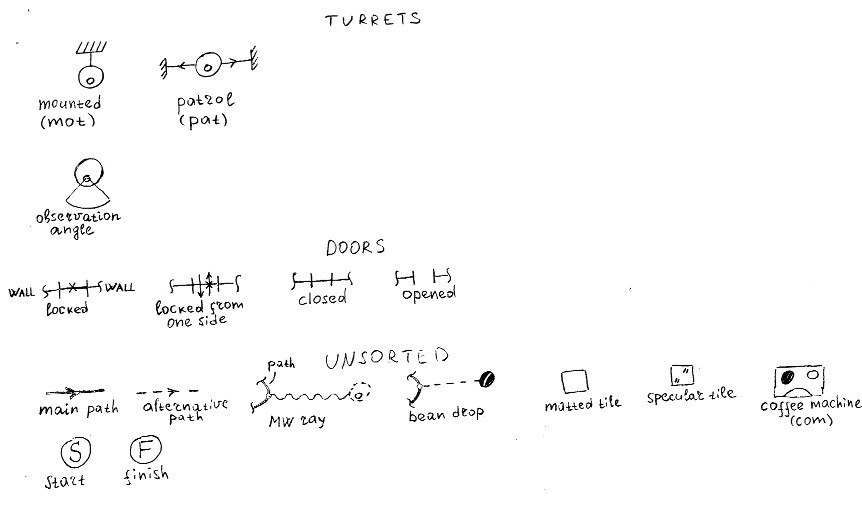 TURRETS
mounted
(mot)
patrol
(pat)
observation
angle
DOORS
WALL
WALL
locked
locked from
one side
closed
opened
UNSORTED
main path
alternative
path
path
MW ray
bean drop
matted tile
specular tile
coffee machine
(com)
S
start
F
finish